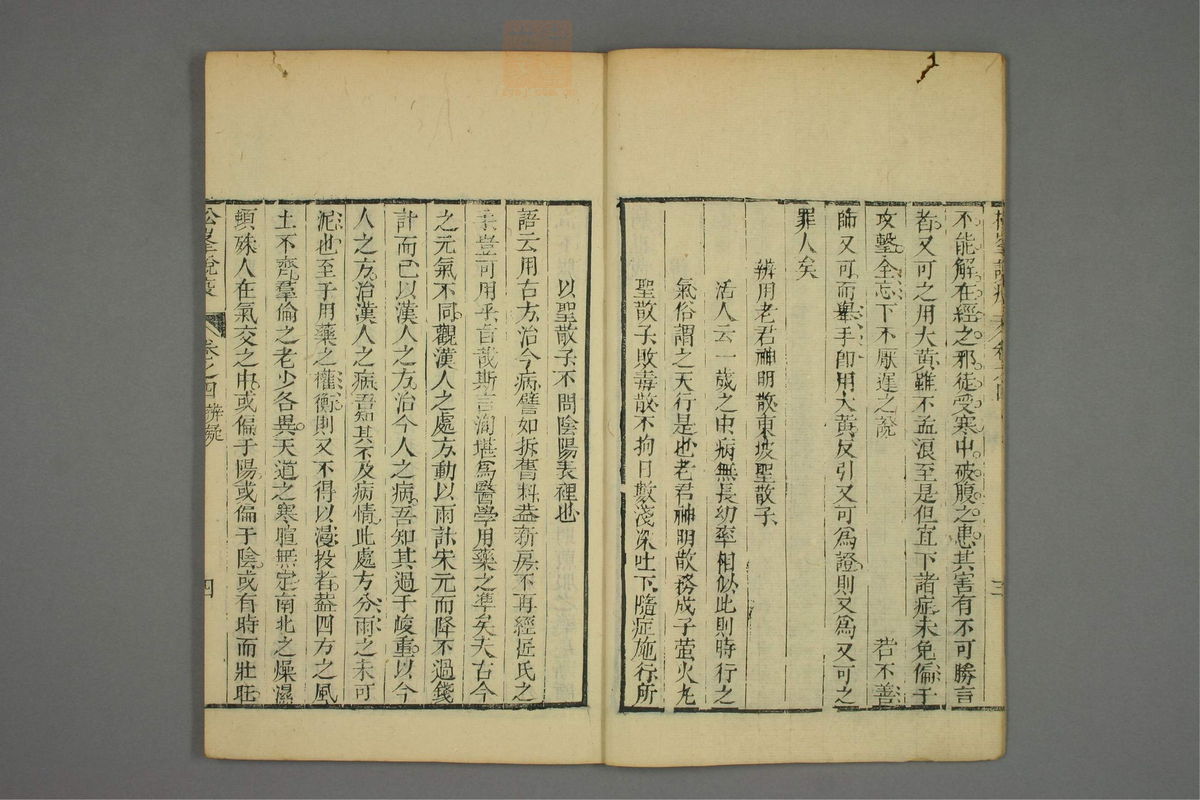 不能解在經之邪徒受寒中破腹之患其害有不可勝言
者又可之用大黃雖不孟浪至是但宜下諸症未免偏于
攻擊全忘下不厭遲之說 若不善
師又可而舉手卽用大黃反引又可爲證則又爲又可之
罪人矣
辨用老君神明散東坡聖散子
活人云一歲之中病無長幼率相似此則時行之
氣俗謂之天行是也老君神明散務成子螢火丸
聖散子敗毒散不拘日數淺深吐下隨症施行所
以聖散子不問陰陽表裡也
語云用古方治今病譬如拆舊料葢新房不再經匠氏之
手豈可用乎旨哉斯言洵堪爲醫學用藥之準矣夫古今
之元氣不同觀漢人之處方動以兩計宋元而降不過錢
計而已以漢人之方治今人之病吾知其過于峻重以今
人之方治漢人之病吾知其不及病情此處方分兩之未可
泥也至于用藥之權衡則又不得以漫投者葢四方之風
土不齊羣倫之老少各異天道之寒暄無定南北之燥濕
頓殊人在氣交之中或偏于陽或偏于陰或有時而壯旺
松峯說疫 卷之四 辨疑 四